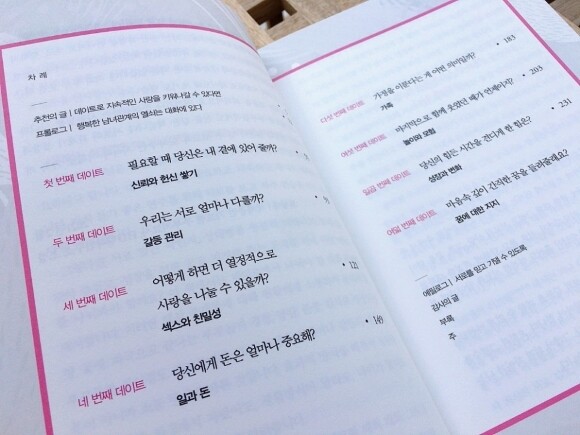 차 례
추천의 글 | 데이트로 지속적인 사랑을 키워나갈 수 있다면
프롤로그 | 행복한 남녀관계의 열쇠는 대화에 있다
첫 번째 데이트 필요할 때 당신은 내 곁에 있어 줄까?
신뢰와 헌신 쌓기
두 번째 데이트 우리는 서로 얼마나 다를까?
갈등 관리
세 번째 데이트 어떻게 하면 더 열정적으로
사랑을 나눌 수 있을까? • 121
섹스와 친밀성
네 번째 데이트 당신에게 돈은 얼마나 중요해? • 149
일과 돈
다섯 번째 데이트 가정을 이룬다는 게 어떤 의미일까? • 183
가족
여섯 번째 데이트 마지막으로 함께 웃었던 때가 언제이지? • 203
놀이와 모험
일곱 번째 데이트 당신의 힘든 시간을 견디게 한 힘은? • 231
성장과 변화
여덟 번째 데이트 마음속 깊이 간직한 꿈을 들려줄래요?
꿈에 대한 지지
에필로그 | 서로를 믿고 가꿀 수 있도록
감사의 글
부록
주